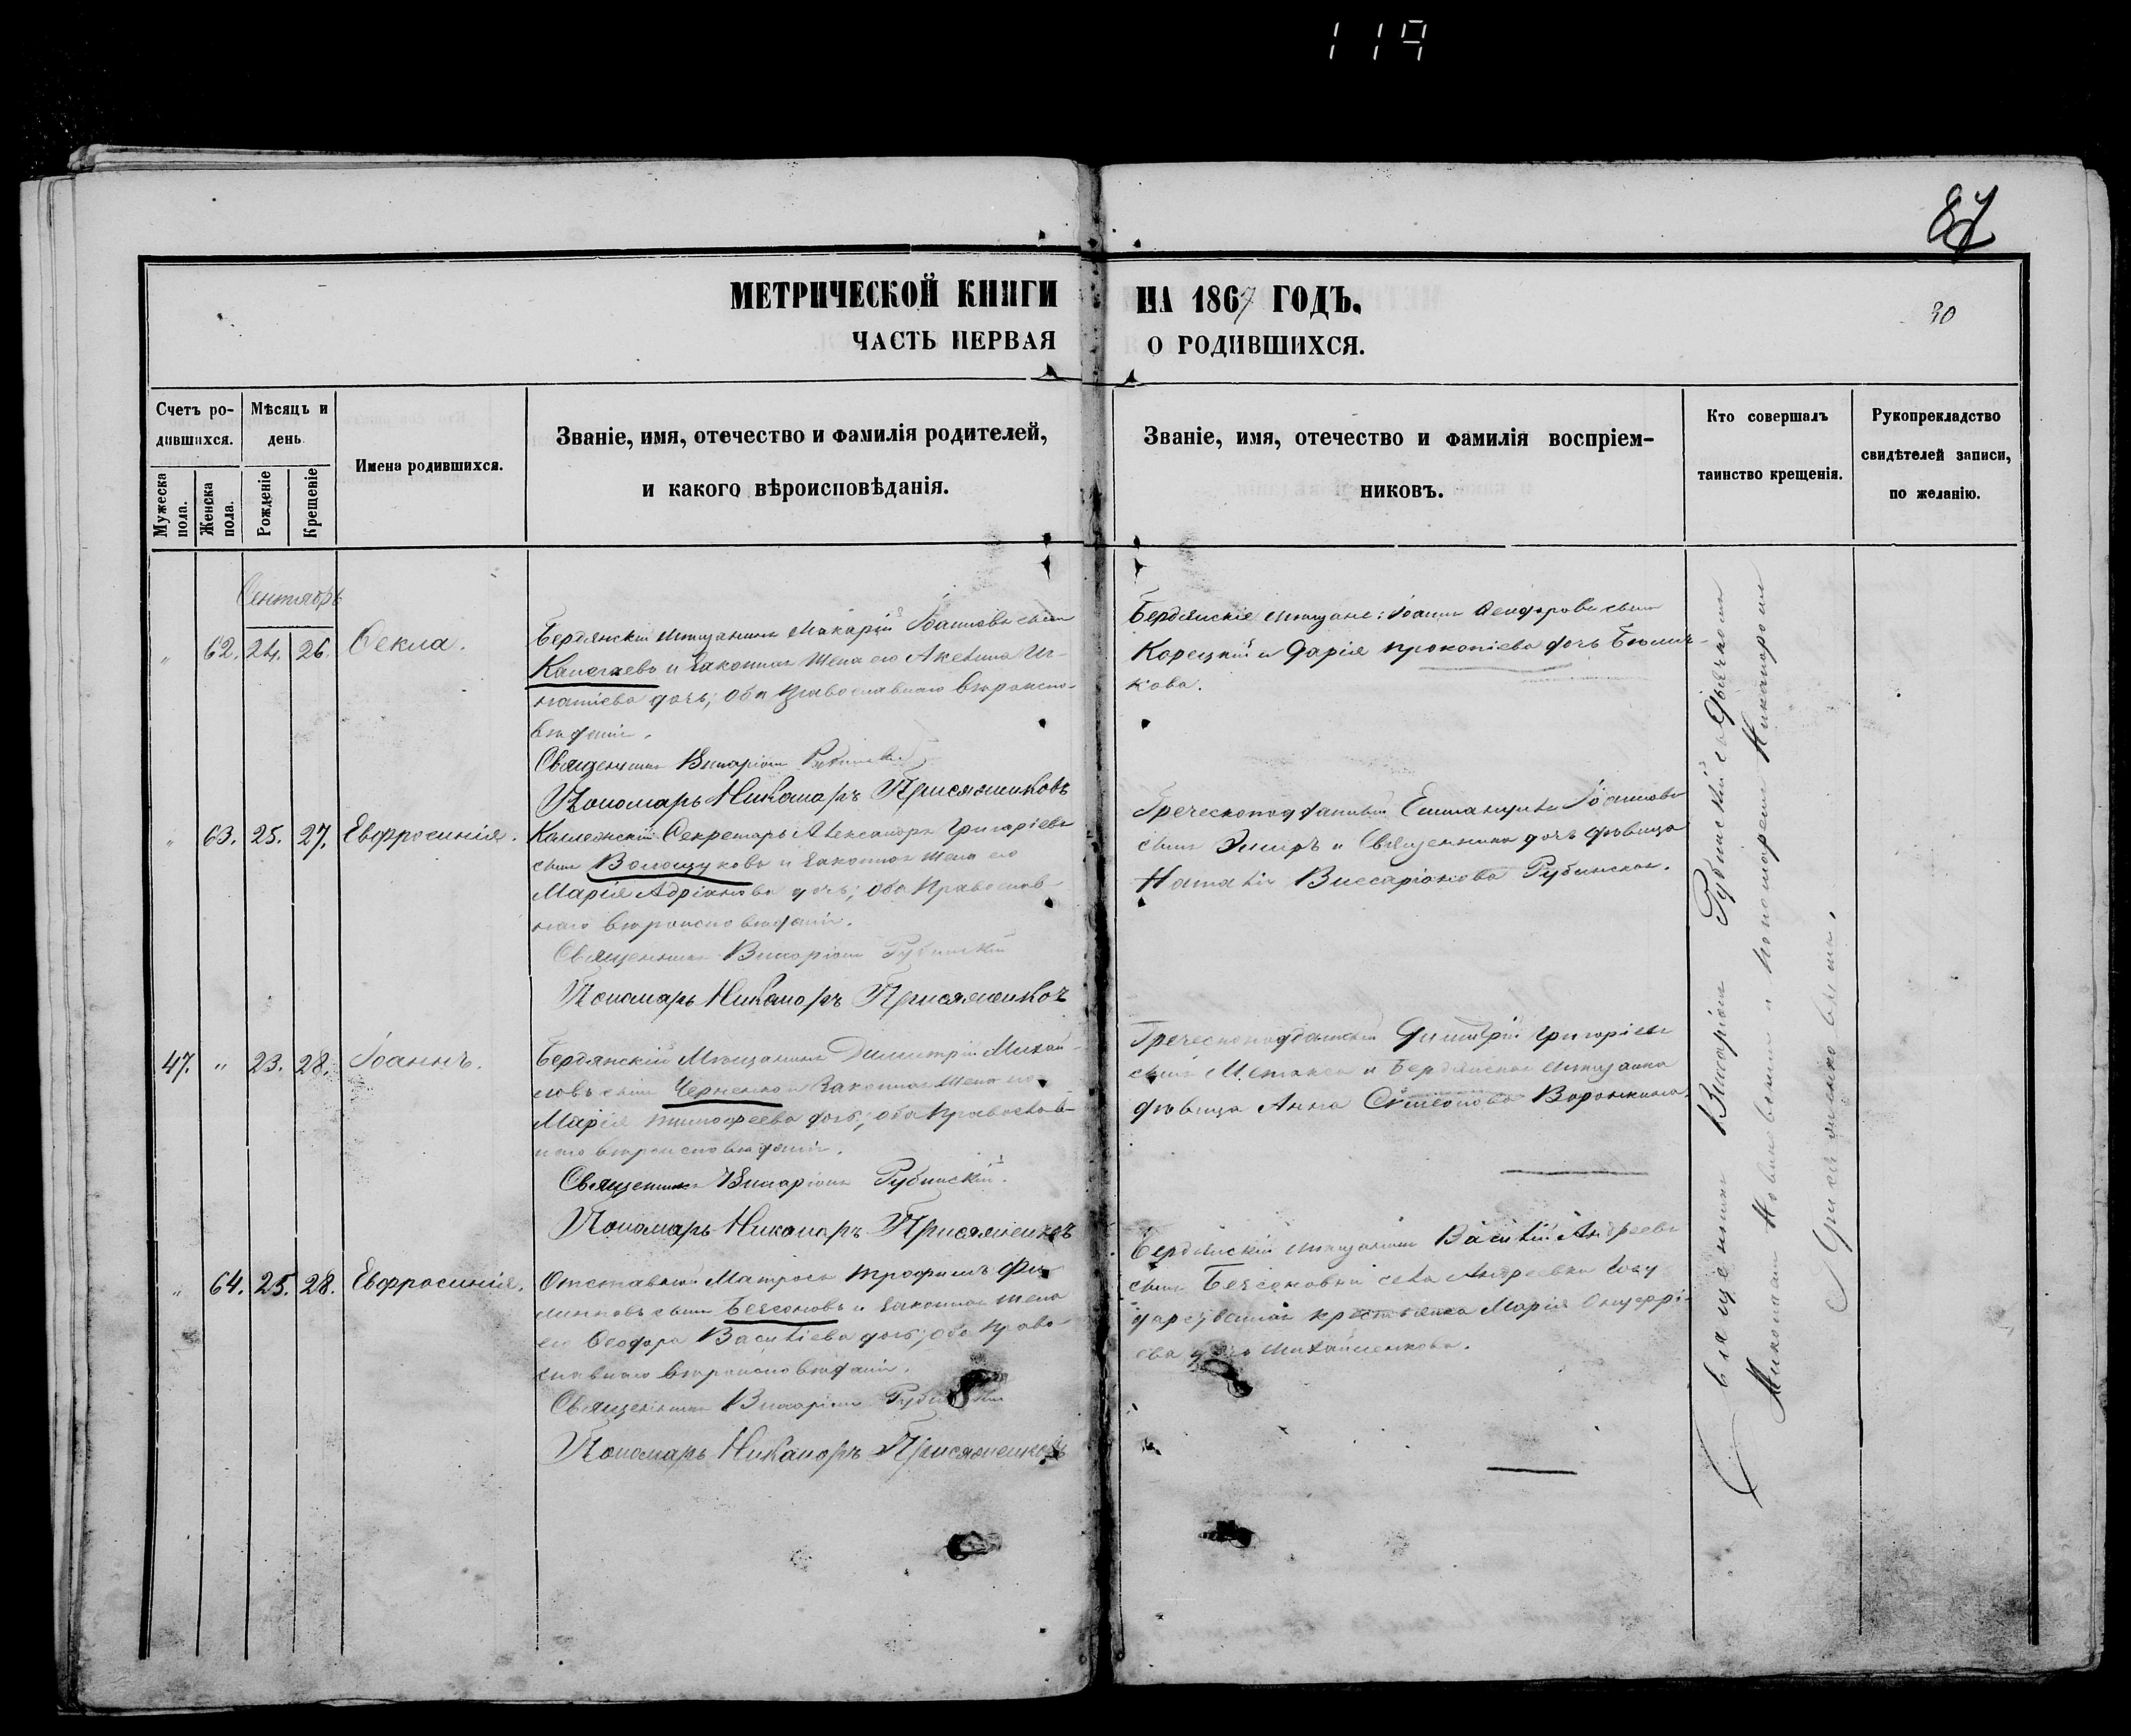 119
87
МЕТРИЧЕСКОЙ КНИГИ НА 1867 ГОДЪ.
30
ЧАСТЬ ПЕРВАЯ О РОДИВШИХСЯ.
Счетъ родившихся.
Мужеска пола.
Женска пола.
Мѣсяцъ и день
Рожденіе
Крещеніе
Имена родившихся.
Званіе, имя, отечество и фамилія родителей,
и какого вѣроисповѣданія.
Званіе, имя, отечество и фамилія воспріем-
никовъ.
Кто совершалъ
таинство крещенія.
Рукоприкладство
свидѣтелей записи,
по желанію.
Сентябрь
" 62. 24. 26. Ѳекла.
Бердянскій мѣщанинъ Макарій Іоанновъ сынъ
и законная жена его Акелина Иг-
натіева дочь; оба православнаго вѣроиспо-
вѣданія.
Священникъ Висаріонъ Рубинскій
Пономарь Никаноръ Присяжниковъ
Бердянскіе мѣщане: Іоаннъ Ѳеодоровъ сынъ
Корецкій и Дарія Прокопіева дочь
кова.
" 63. 25. 27. Евфросинія.
Секретарь Александръ Григоріевъ
сынъ Волощуковъ и законная жена его
Марія Адріанова дочь; оба Православ-
наго вѣроисповѣданія.
Священникъ Висаріонъ Рубинскій
Пономарь Никаноръ Присяжниковъ
Греческоподданный Еммануилъ Іоанновъ
сынъ и Священника дочь дѣвица
Наталія Виссаріонова Рубинская.
47. " 23. 28. Іоаннъ.
Бердянскій Мѣщанинъ Димитрій Михай-
ловъ сынъ Черненко и Законная жена его
Марія Тимофеева дочь; оба православ-
наго вѣроисповѣданія.
Священникъ Висаріонъ Рубинскій.
Пономарь Никаноръ Присяжниковъ
Греческоподданный Димитрій Григоріевъ
сынъ Метакса и Бердянская мѣщанка
дѣвица Анна Симеонова Воронкина.
" 64. 25. 28. Евфросинія.
Отставной Матросъ Трофимъ Фи-
липповъ сынъ Безсоновъ и законная жена
его Ѳеодора Василіева дочь; оба право-
славнаго вѣроисповѣданія.
Священникъ Висаріонъ Рубинскій
Пономарь Никаноръ Присяжниковъ
Бердянскій мѣщанинъ Василій Андреевъ
сынъ села Андреевки Госу-
дарственная крестьянка Марія Онуфрі-
ева дочь Михайленкова.
Священникъ Висаріонъ Рубинскій съ Дьячкомъ
и пономаремъ Никаноромъ
Присяжниковымъ.